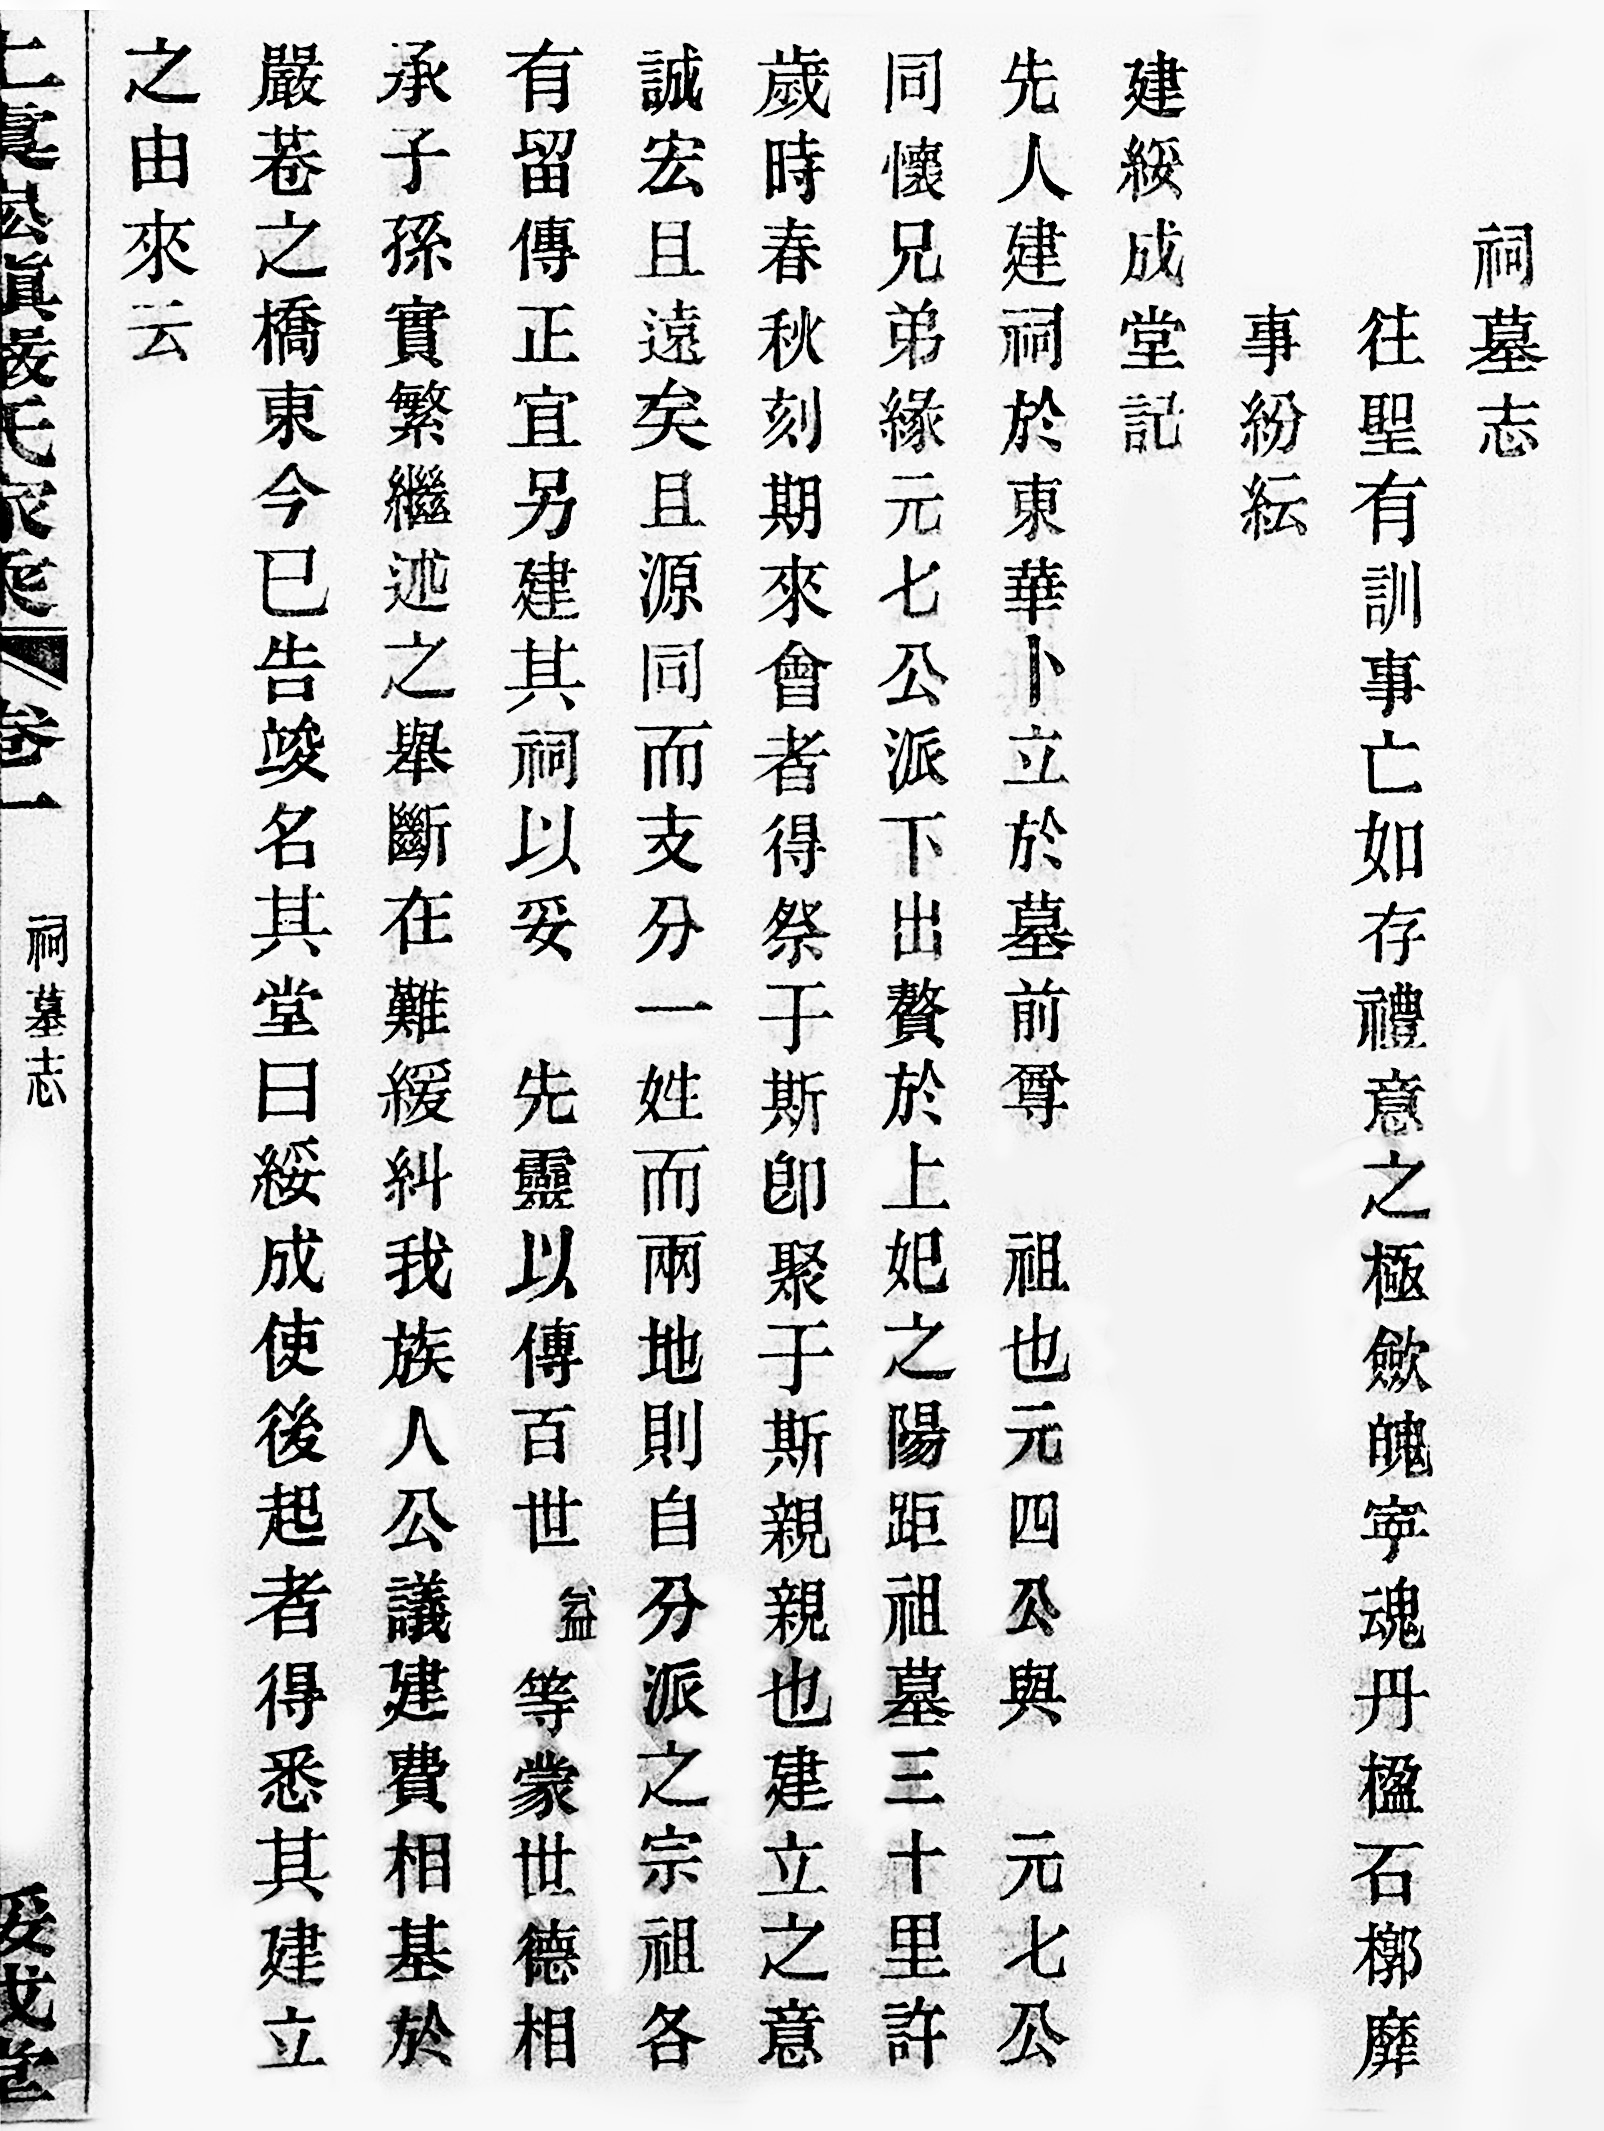 祠墓志
往聖有訓事亡如存禮意之極歛魄寧魂丹楹石槨靡
事紛紜
建綏成堂記
先人建祠於東華卜立於墓前尊　祖也元四公與　元七公
同懷兄弟緣元七公派下出贅於上妃之陽距祖墓三十里許
歲時春秋刻期來會者得祭于斯卽聚于斯親親也建立之意
誠宏且遠矣且源同而支分一姓而兩地則自分派之宗祖各
有留傳正宜另建其祠以妥　先靈以傳百世　益等蒙世德相
承子孫實繁繼述之舉斷在難緩糾我族人公議建費相基於
嚴巷之橋東今已告竣名其堂曰綏成使後起者得悉其建立
之由來云
嚴氏家乘　卷一　祠墓志　綏成堂